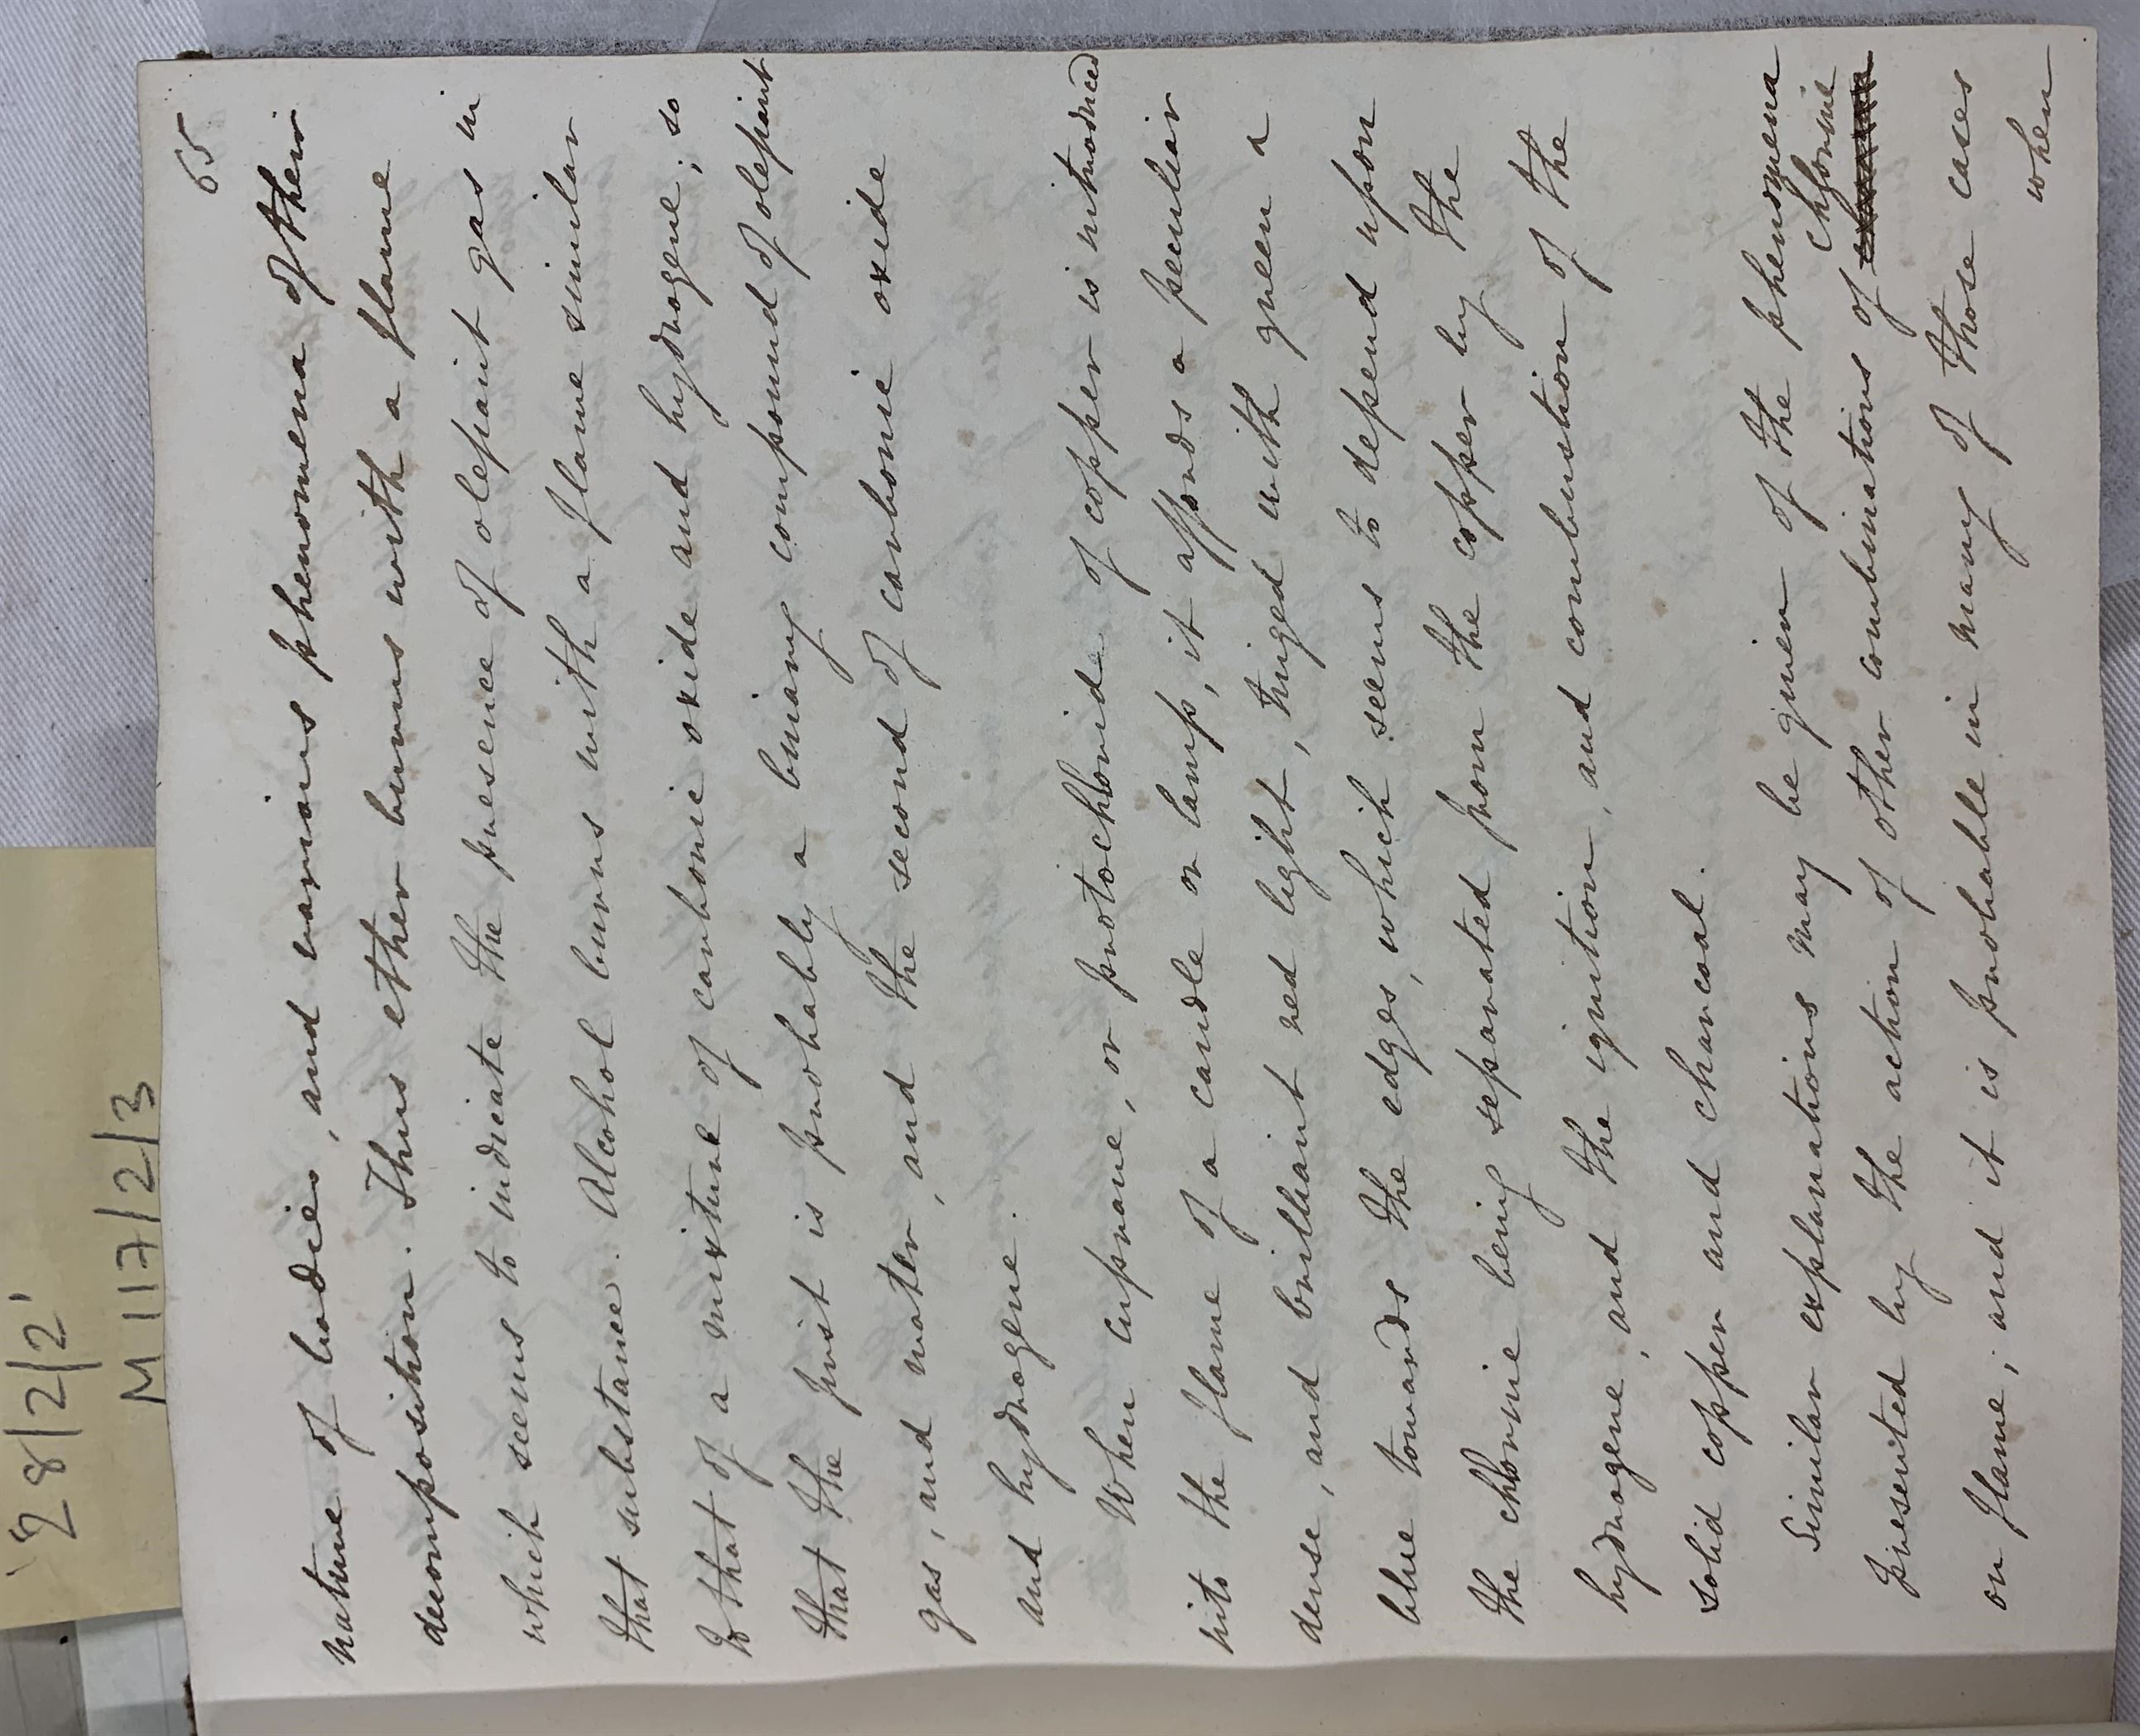 '28/2/2'
M 117/2/3
65
nature of bodies, and various phenomena of their
decomposition. Thus ether burns with a flame
which seems to indicate the presence of olefiant gas in
that substance. Alcohol burns with a flame similar
to that of a mixture of carbonic oxide and hydrogene; so
that the first is probably a binary compound of olefiant
gas, and water, and the second of carbonic oxide
and hydrogene.
When cuprane, or protochloride of copper is introduced
into the flame of a candle or lamp, it affords a peculiar
dense, and brilliant red light, tinged with green &
blue towards the edges, which seems to depend upon
the chlorine being separated from the copper by the
hydrogene, and the ignition, and combustion of the
solid copper and charcoal.
Similar explanations may be given of the phenomena
chlorine
presented by the action of other combinations of
on flame; and it is probable in many of those cases
when